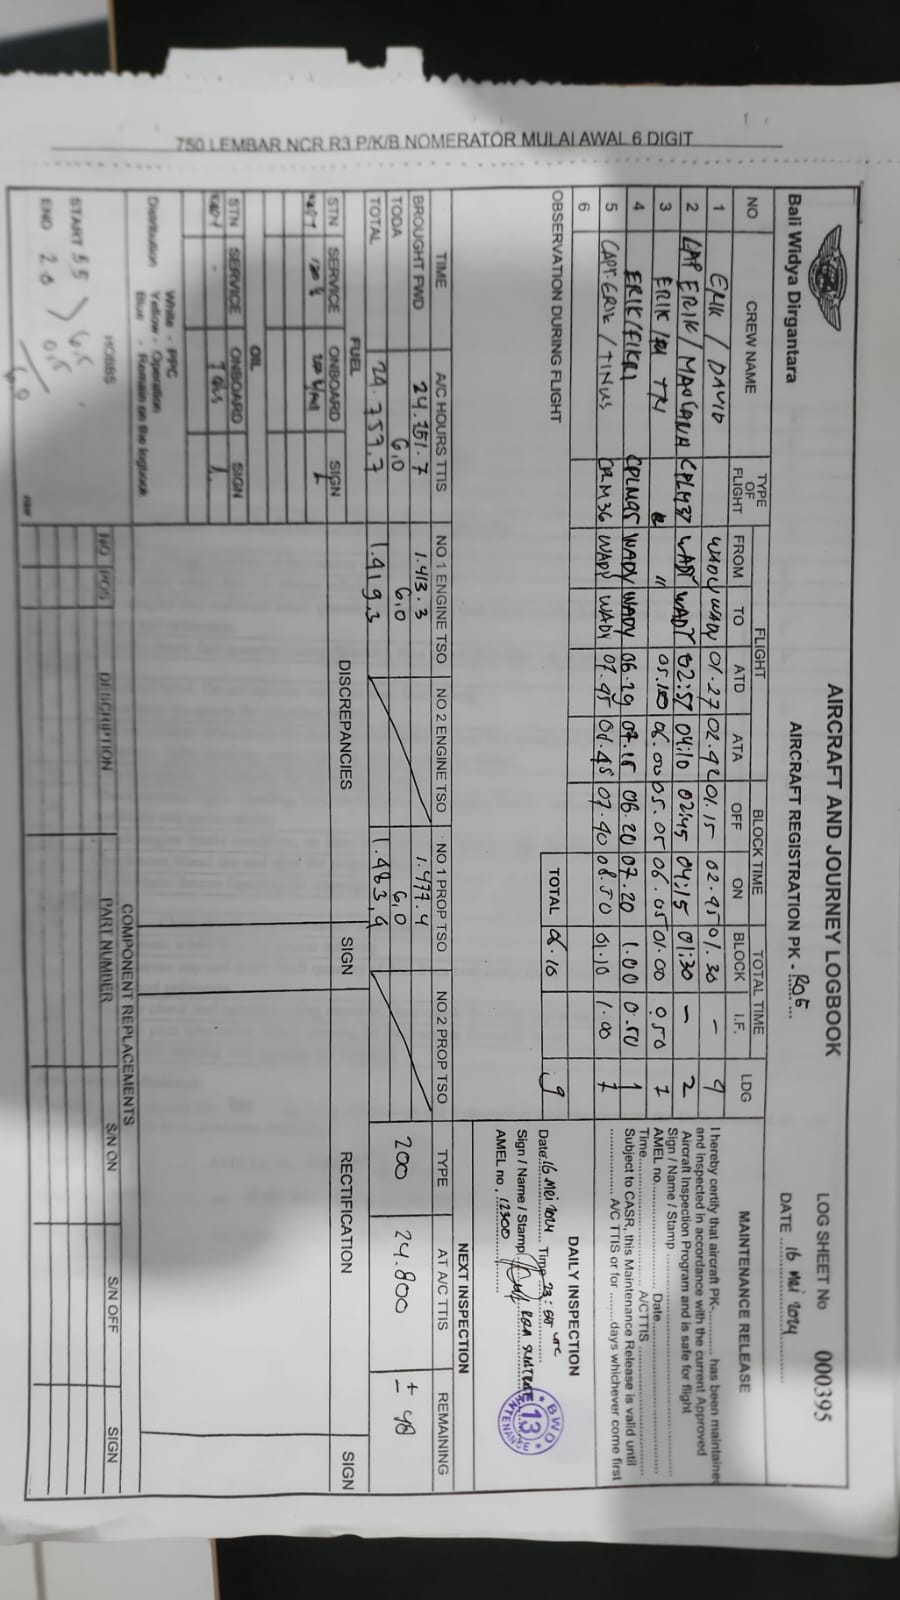 750 LEMBAR NCR R3 P/K/B NOMERATOR MULAI AWAL 6 DIGIT
AIRCRAFT AND JOURNEY LOGBOOK
LOG SHEET No 000395
Bali Widya Dirgantara
AIRCRAFT REGISTRATION PK - ROE
DATE 16 Mei 2024
NO CREW NAME TYPE OF FLIGHT FLIGHT BLOCK TIME TOTAL TIME LDG
FROM TO ATD ATA OFF ON BLOCK I.F.
1 ERIK / DAVID WADY WADY 01.27 02.42 01.15 02.45 01.30 - 4
2 CAP ERIK / MAULANA CPLM37 WADY WADY 02:57 04:10 02:45 04:15 01:30 - 2
3 ERIK / TRI " 05.10 06.00 05.05 06.05 01.00 0.50 1
4 ERIK/FIKRI CPLM45 WADY WADY 06.29 07.15 06.20 07.20 1.00 0.50 1
5 CAPT. ERIK / TINUS CPLM36 WADY WADY 07.45 08.45 07.40 08.50 01.10 1.00 1
6
OBSERVATION DURING FLIGHT
TOTAL 6.10 9
MAINTENANCE RELEASE
I hereby certify that aircraft PK-.......... has been maintained
and inspected in accordance with the current Approved
Aircraft Inspection Program and is safe for flight
Sign / Name / Stamp
AMEL no. Date
Time A/C TTIS
Subject to CASR, this Maintenance Release is valid until
A/C TTIS or for ........ days whichever come first
DAILY INSPECTION
Date 16 Mei 2024 Time 23:50 UTC
Sign / Name / Stamp
AMEL no. 12300
BWD 13 MAINTENANCE
TIME A/C HOURS TTIS NO 1 ENGINE TSO NO 2 ENGINE TSO NO 1 PROP TSO NO 2 PROP TSO
BROUGHT FWD 24.751.7 1.413.3 1.477.4
TODA 6,0 6,0 6,0
TOTAL 24.757.7 1.419.3 1.483,4
NEXT INSPECTION
TYPE AT A/C TTIS REMAINING
200 24.800 + - 48
FUEL
STN SERVICE ONBOARD SIGN
OIL
STN SERVICE ONBOARD SIGN
DISCREPANCIES SIGN RECTIFICATION SIGN
Distribution White - PPC
Yellow - Operation
Blue - Remain on the logbook
COMPONENT REPLACEMENTS
NO POS DESCRIPTION PART NUMBER S/N ON S/N OFF SIGN
HOBBS
START 5.5 6.5
END 2.0 0.5
6.0